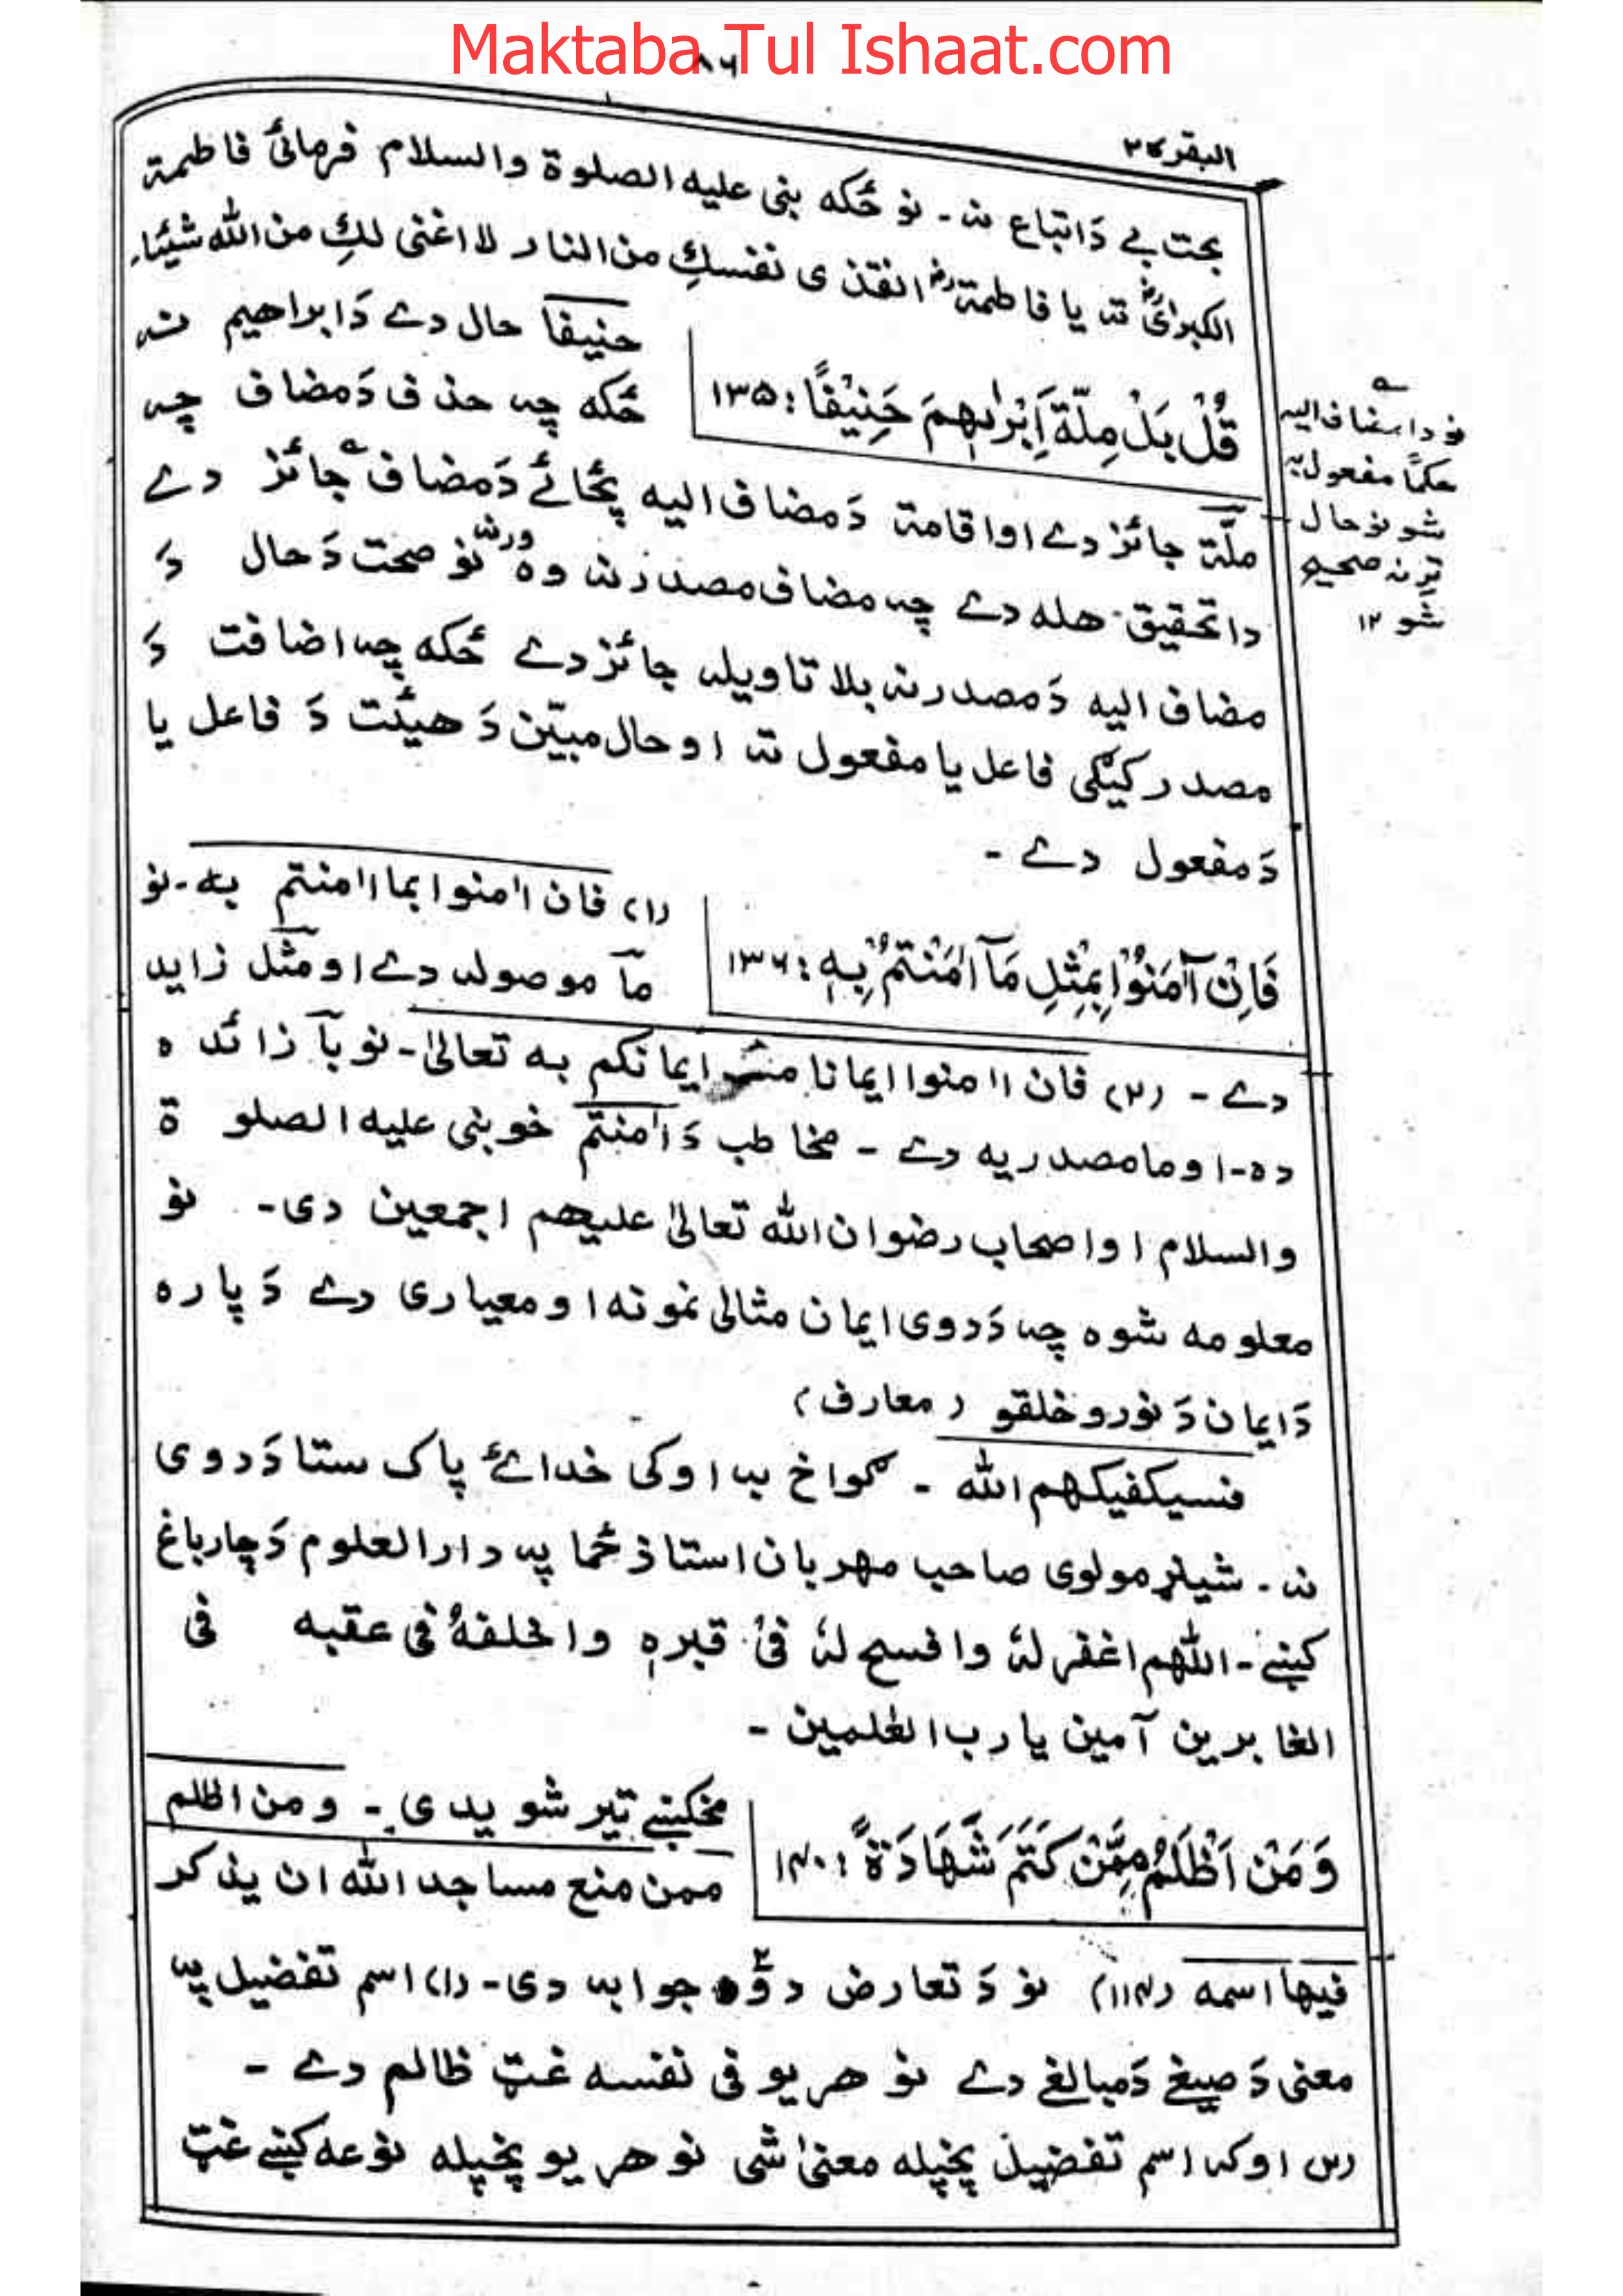 Maktaba Tul Ishaat.com
٨٦
البقرة ٢
بجت بے دَ اتباع نہ ۔ نو ځکه بنی علیه الصلوة والسلام فرمائی فاطمة
الکبرای ته یا فاطمة انقذی نفسكِ من النار لا اغنی لكِ من الله شیئا۔
قُلْ بَلْ مِلَّةَ اِبْرٰهٖمَ حَنِیْفًا : ١٣٥
حنیفا حال دے دَ ابراهیم نہ
ځکه چہ حذف دَ مضاف چہ
ملّة جائز دے او اقامة دَ مضاف الیه پځائے دَ مضاف جائز دے
دا تحقیق هله دے چہ مضاف مصدر نہ وه ورنہ نو صحت دَ حال دَ
مضاف الیه دَ مصدر نہ بلا تاویلہ جائز دے ځکه چہ اضافت دَ
مصدر کیګی فاعل یا مفعول ته او حال مبیّن دَ هیئت دَ فاعل یا
دَ مفعول دے ۔
نو دا مضاف الیه
حکمًا مفعول بہ
شو نو حال
ترنہ صحیح
شو ١٢
فَاِنْ آمَنُوْا بِمِثْلِ مَآ اٰمَنْتُمْ بِهٖ : ١٣٦
(١) فان اٰمنوا بما اٰمنتم به ۔ نو
مآ موصولہ دے او مثل زاید
دے ۔ (٢) فان اٰمنوا ایمانا مثل ایمانکم به تعالیٰ ۔ نو بآ زائده
ده ۔ او ما مصدریه دے ۔ مخاطب دَ اٰمنتم خو بنی علیه الصلوة
والسلام او اصحاب رضوان الله تعالیٰ علیهم اجمعین دی ۔ نو
معلومه شوه چہ دَ دوی ایمان مثالی نمونه او معیاری دے دَ پاره
دَ ایمان دَ نورو خلقو (معارف)
فسیکفیکهم الله ۔ کمواخ بہ اوکی خدائے پاک ستا دَ دوی
نہ ۔ شیلز مولوی صاحب مهربان استاذ ځما پہ دارالعلوم دَ چارباغ
کښے ۔ اللهم اغفر لهٗ وافسح لهٗ فی قبرہٖ واخلفهٗ فی عقبه فی
الغابرین آمین یا رب العٰلمین ۔
وَ مَنْ اَظْلَمُ مِمَّنْ کَتَمَ شَهَادَةً : ١٤٠
مخکښے تیر شویدی ۔ ومن اظلم
ممن منع مساجد الله ان یذکر
فیها اسمه (١١٤) نو دَ تعارض دوٗه جوابہ دی ۔ (١) اسم تفضیل پہ
معنی دَ صیغے دَ مبالغے دے نو هر یو فی نفسه غټ ظالم دے ۔
(٢) او کہ اسم تفضیل پخپله معنیٰ شی نو هر یو پخپله نوعه کښے غټ